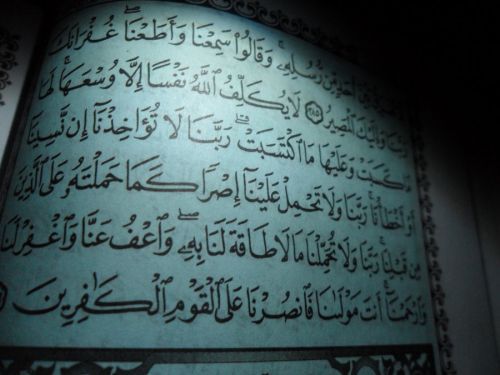 بَيْنَ أَحَدٍ مِّن رُّسُلِهِۦ ۚ وَقَالُوا۟ سَمِعْنَا وَأَطَعْنَا ۖ غُفْرَانَكَ
رَبَّنَا وَإِلَيْكَ ٱلْمَصِيرُ ﴿٢٨٥﴾ لَا يُكَلِّفُ ٱللَّهُ نَفْسًا إِلَّا وُسْعَهَا ۚ لَهَا
مَا كَسَبَتْ وَعَلَيْهَا مَا ٱكْتَسَبَتْ ۗ رَبَّنَا لَا تُؤَاخِذْنَآ إِن نَّسِينَآ
أَوْ أَخْطَأْنَا ۚ رَبَّنَا وَلَا تَحْمِلْ عَلَيْنَآ إِصْرًا كَمَا حَمَلْتَهُۥ عَلَى ٱلَّذِينَ
مِن قَبْلِنَا ۚ رَبَّنَا وَلَا تُحَمِّلْنَا مَا لَا طَاقَةَ لَنَا بِهِۦ ۖ وَٱعْفُ عَنَّا وَٱغْفِرْ لَنَا
وَٱرْحَمْنَآ ۚ أَنتَ مَوْلَىٰنَا فَٱنصُرْنَا عَلَى ٱلْقَوْمِ ٱلْكَٰفِرِينَ